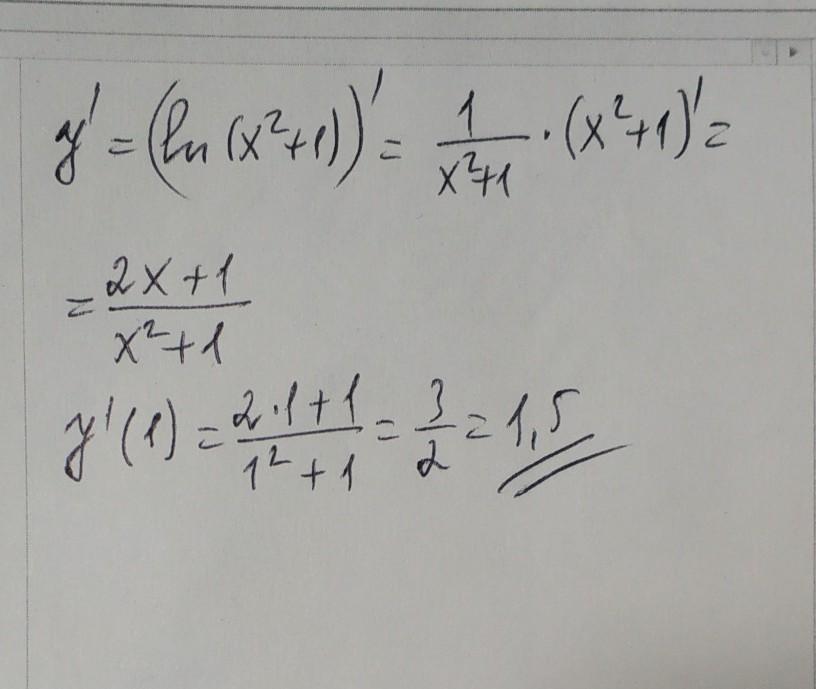 y' = (ln (x²+1))' = 1/(x²+1) · (x²+1)' =
= (2x+1)/(x²+1)
y'(1) = (2·1+1)/(1²+1) = 3/2 = 1,5